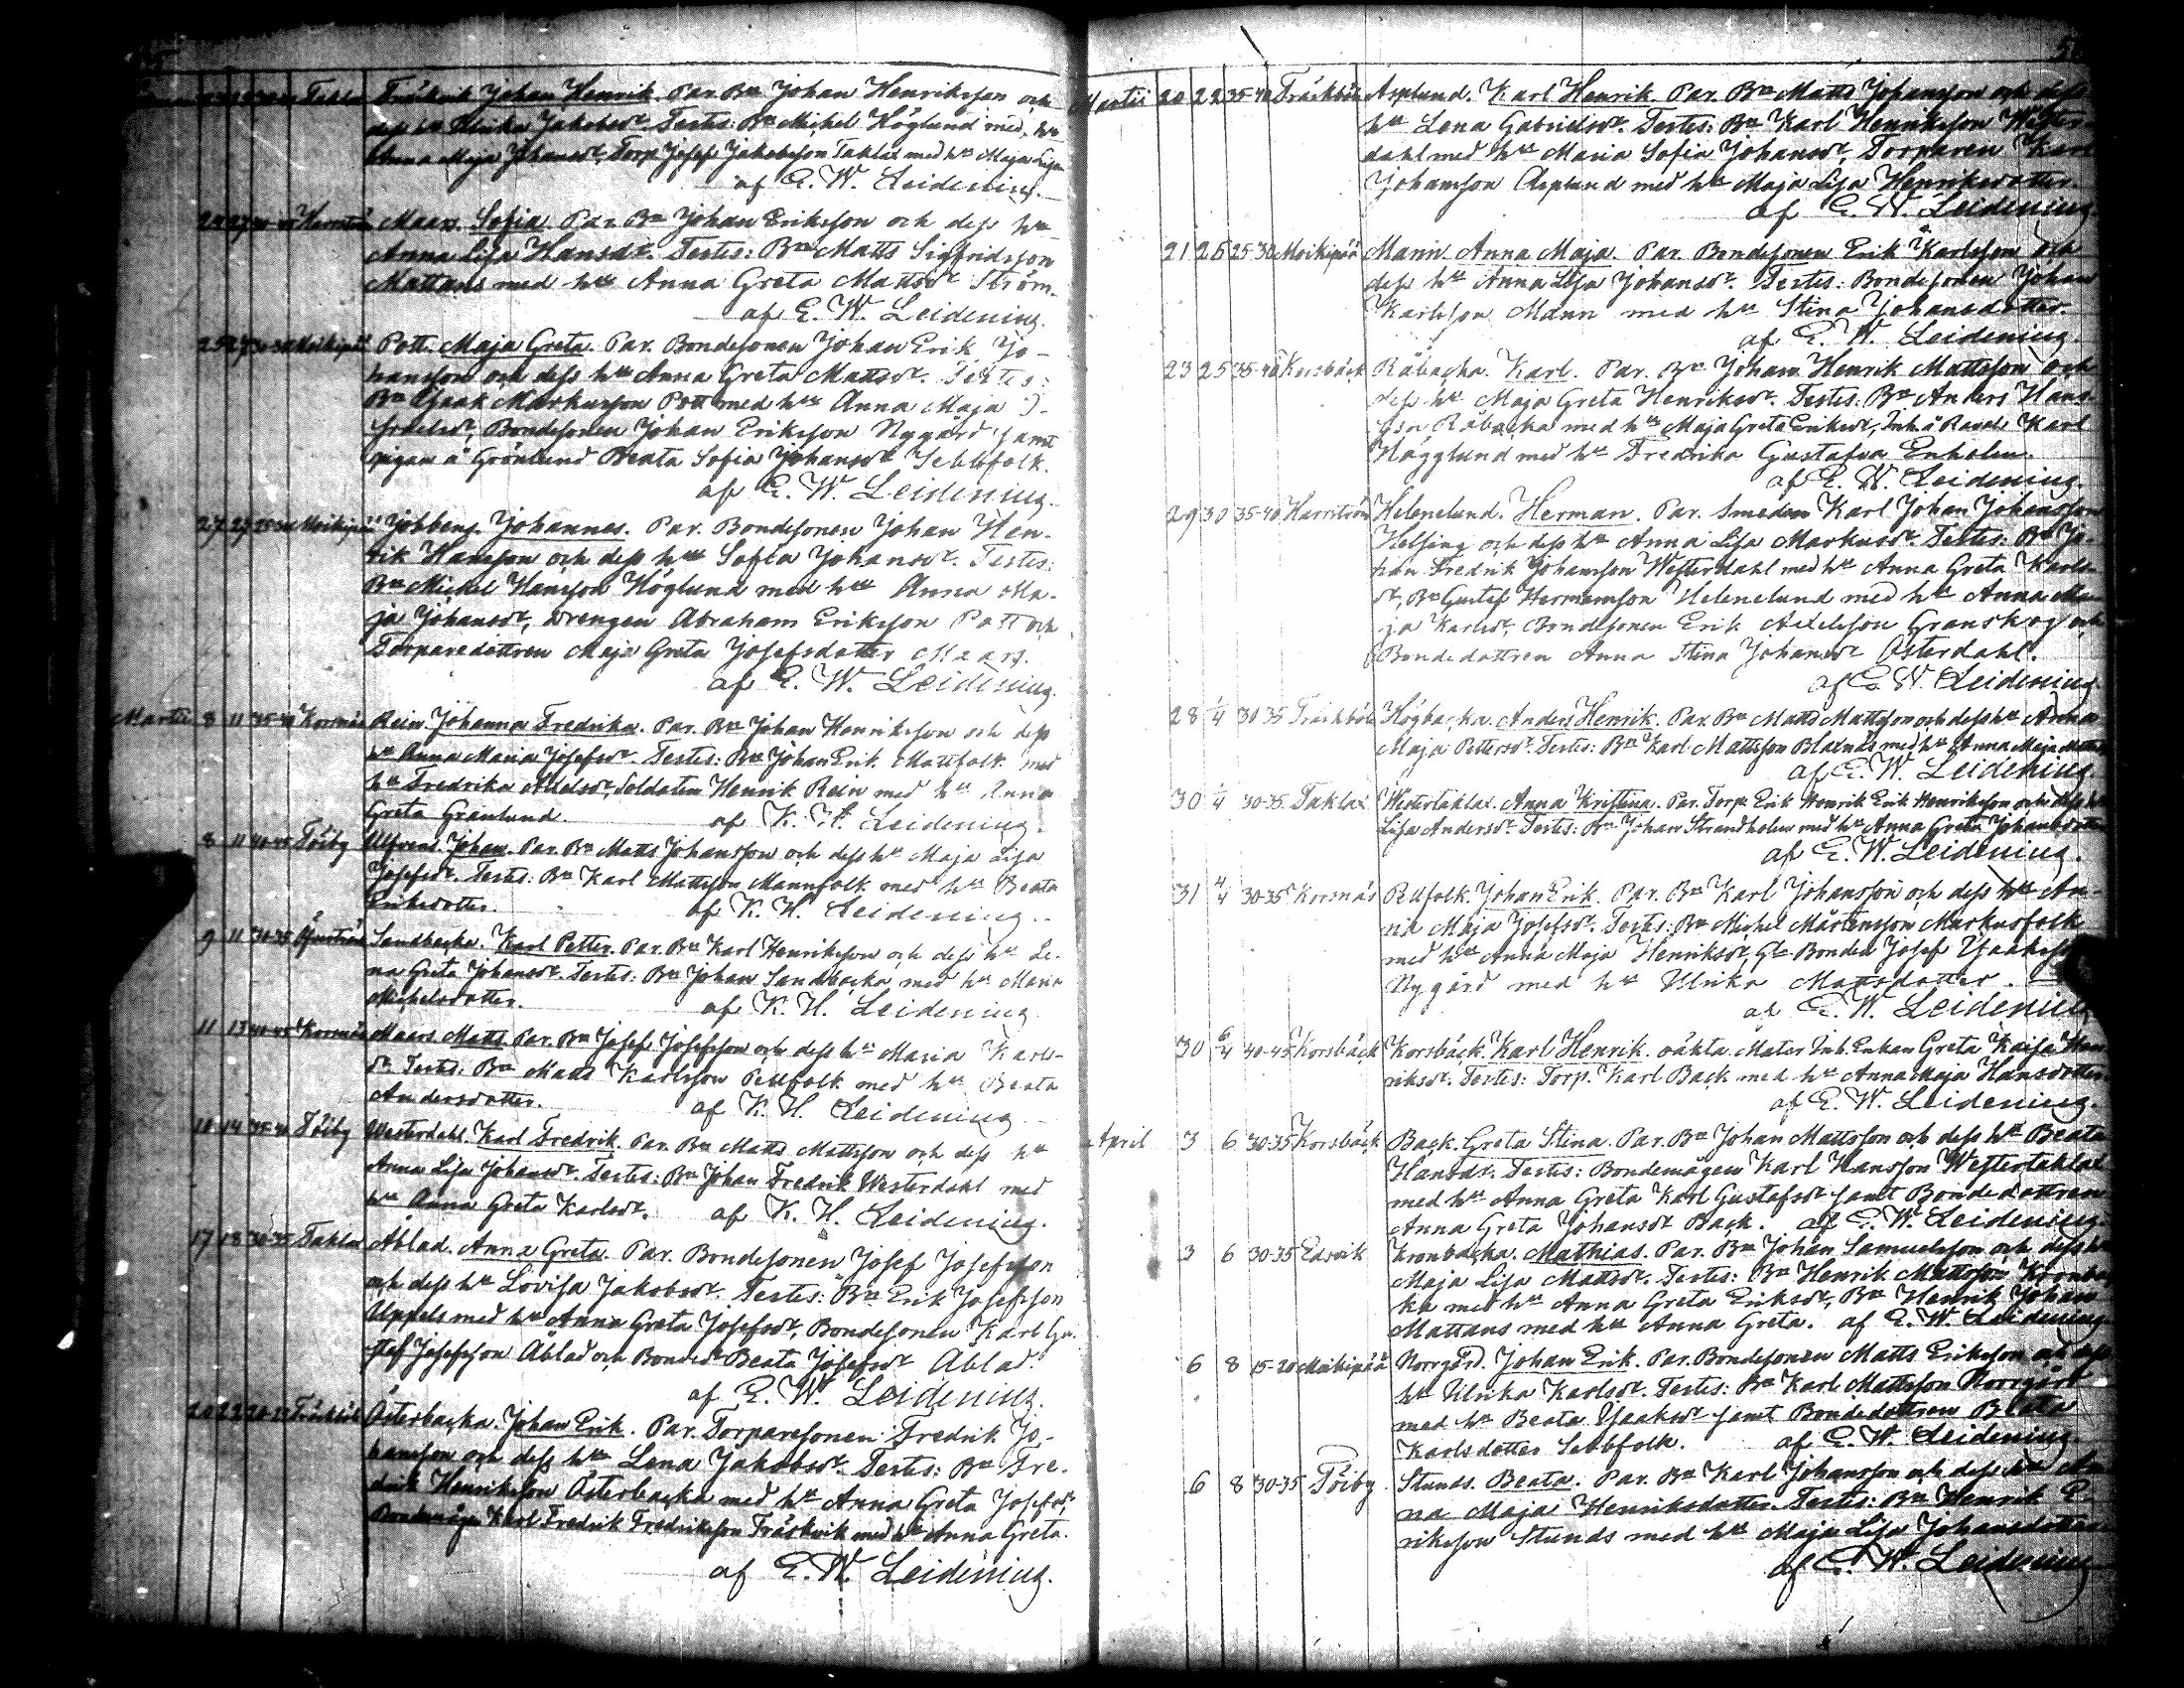 Taklax Träskvik Johan Henrik. Par. Bn Johan Henriksson och
dess hu Ulrika Jakobsdr. Testes: Bn Michel Höglund med hu
Anna Maja Johansdr, Torp. Josef Jakobsson Taklax med hu Maja Lisa
af E. W. Leidenius.
Maars. Sofia. Par. Bn Johan Eriksson och dess hu
Anna Lisa Hansdr. Testes: Bn Matts Sigfridsson
Mattans med hu Anna Greta Mattsdr Ström.
af E. W. Leidenius.
25 27 30-35 Moikipää Pott. Maja Greta. Par. Bondesonen Johan Erik Jo-
hansson och dess hu Anna Greta Mattsdr. Testes:
Bn Isaak Markusson Pott med hu Anna Maja I-
sraelsdr, Bondesonen Johan Eriksson Nygård samt
pigan å Grönlund Beata Sofia Johansdr Sebbfolk.
af E. W. Leidenius.
27 27 25-30 Moikipää Johberg. Johannes. Par. Bondesonen Johan Hen-
rik Hansson och dess hu Sofia Johansdr. Testes:
Bn Michel Hansson Höglund med hu Anna Ma-
ja Johansdr, drengen Abraham Eriksson Pott och
Torparedottren Maja Greta Josefsdotter Maars.
af E. W. Leidenius.
Martii 8 11 35-40 Korsnäs Rein. Johanna Fredrika. Par. Bn Johan Henriksson och dess
hu Anna Maria Josefsdr. Testes: Bn Johan Erik Mattfolk med
hu Fredrika Axelsdr, Soldaten Henrik Rein med hu Anna
Greta Granlund. af K. H. Leidenius.
8 11 40-45 Töjby Ulfvens. Johan. Par. Bn Matts Johansson och dess hu Maja Lisa
Josefsdr. Testes: Bn Karl Mattsson Mannfolk med hu Beata
Eriksdotter. af K. H. Leidenius.
9 11 30-35 Sandbacka. Karl Petter. Par. Bn Karl Henriksson och dess hu Le-
na Greta Johansdr. Testes: Bn Johan Sandbacka med hu Maria
Michelsdotter. af K. H. Leidenius.
11 13 40-45 Korsnäs Maars. Matts. Par. Bn Josef Josefsson och dess hu Maria Karls-
dr. Testes: Bn Matts Karlsson Pellfolk med hu Beata
Andersdotter. af K. H. Leidenius
10 14 35-40 Töjby Westerdahl. Karl Fredrik. Par. Bn Matts Mattsson och dess hu
Anna Lisa Johansdr. Testes: Bn Johan Fredrik Westerdahl med
hu Anna Greta Karlsdr. af K. H. Leidenius.
17 18 30-35 Taklax Åblad. Anna Greta. Par. Bondesonen Josef Josefsson
och dess hu Lovisa Jakobsdr. Testes: Bn Erik Josefsson
Uppels med hu Anna Greta Josefsdr, Bondesonen Karl Gu-
staf Josefsson Åblad och Bondedr Beata Josefsdr Åblad.
af E. W. Leidenius.
Österbacka. Johan Erik. Par. Torparesonen Fredrik Jo-
hansson och dess hu Lena Jakobsdr. Testes: Bn Fre-
drik Henriksson Österbacka med hu Anna Greta Josefsdr
Bondemågen Karl Fredrik Fredriksson Träskvik med hu Anna Greta.
af E. W. Leidenius.
Martii 20 22 35-40 Träskböle Asplund. Karl Henrik. Par. Bn Matts Johansson och dess
hu Lena Gabrielsdr. Testes: Bn Karl Henriksson Wester-
dahl med hu Maria Sofia Johansdr, Torparen Karl
Johansson Asplund med hu Maja Lisa Henriksdotter.
af E. W. Leidenius.
21 25 25-30 Moikipää Mann. Anna Maja. Par. Bondesonen Erik Karlsson och
dess hu Anna Lisa Johansdr. Testes: Bondesonen Johan
Karlsson Mann med hu Stina Johansdotter.
af E. W. Leidenius.
23 25 35-40 Korsbäck Råbacka. Karl. Par. Bn Johan Henrik Mattsson och
dess hu Maja Greta Henriksdr. Testes: Bn Anders Hans-
son Råbacka med hu Maja Greta Eriksdr, Inh. å Karl
Högglund med hu Fredrika Gustafva Enholm.
af E. W. Leidenius.
29 30 35-40 Harrström Helenelund. Herman. Par. Smeden Karl Johan Johansson
Helsing och dess hu Anna Lisa Markusdr. Testes: Bn Jo-
han Fredrik Johansson Westerdahl med hu Anna Greta Karls-
dr, Bn Gustaf Hermansson Helenelund med hu Anna Ma-
ja Karlsdr, Bondesonen Erik Axelsson Granskog och
Bondedottren Anna Stina Johansdr Österdahl.
af E. W. Leidenius.
28 1/4 30-35 Träskböle Högbacka. Anders Henrik. Par. Bn Matts Mattsson och dess hu Anna
Maja Pettersdr. Testes: Bn Karl Mattsson Blaxnäs med hu Anna Maja
af E. W. Leidenius.
30 1/4 30-35 Taklax Westertaklax. Anna Kristina. Par. Torp. Erik Henrik Erik Henriksson och dess hu
Lisa Andersdr. Testes: Bn Johan Strandholm med hu Anna Greta Johansdotter
af E. W. Leidenius.
31 4/4 30-35 Korsnäs Pellfolk. Johan Erik. Par. Bn Karl Johansson och dess hu An-
na Maja Josefsdr. Testes: Bn Michel Mårtensson Markusfolk
med hu Anna Maja Henriksdr, Gl. Bonden Josef Isaksson
Nygård med hu Ulrika Mattsdotter.
af E. W. Leidenius
30 6/4 40-45 Korsbäck Korsbäck. Karl Henrik. oäkta. Mater Inh. Enkan Greta Kaisa Hen-
riksdr. Testes: Torp. Karl Back med hu Anna Maja Hansdotter.
af E. W. Leidenius.
April 3 6 30-35 Korsbäck Back. Greta Stina. Par. Bn Johan Mattsson och dess hu Beata
Hansdr. Testes: Bondemågen Karl Hansson Westertaklax
med hu Anna Greta Karl Gustafsdr samt Bondedottren
Anna Greta Johansdr Back. af E. W. Leidenius.
3 6 30-35 Edsvik Kronbacka. Mathias. Par. Bn Johan Samuelsson och dess hu
Maja Lisa Mattsdr. Testes: Bn Henrik Mattsson Kronba-
ka med hu Anna Greta Eriksdr, Bn Henrik Johan
Mattans med hu Anna Greta. af E. W. Leidenius.
6 8 15-20 Moikipää Norrgård. Johan Erik. Par. Bondesonen Matts Eriksson och dess
hu Ulrika Karlsdr. Testes: Bn Karl Mattsson Norrgård
med hu Beata Isaaksdr samt Bondedottren Beata
Karlsdotter Sebbfolk. af E. W. Leidenius.
6 8 30-35 Töjby Stunds. Beata. Par. Bn Karl Johansson och dess hu An-
na Maja Henriksdotter. Testes: Bn Henrik E-
riksson Stunds med hu Maja Lisa Johansdotter
af E. W. Leidenius